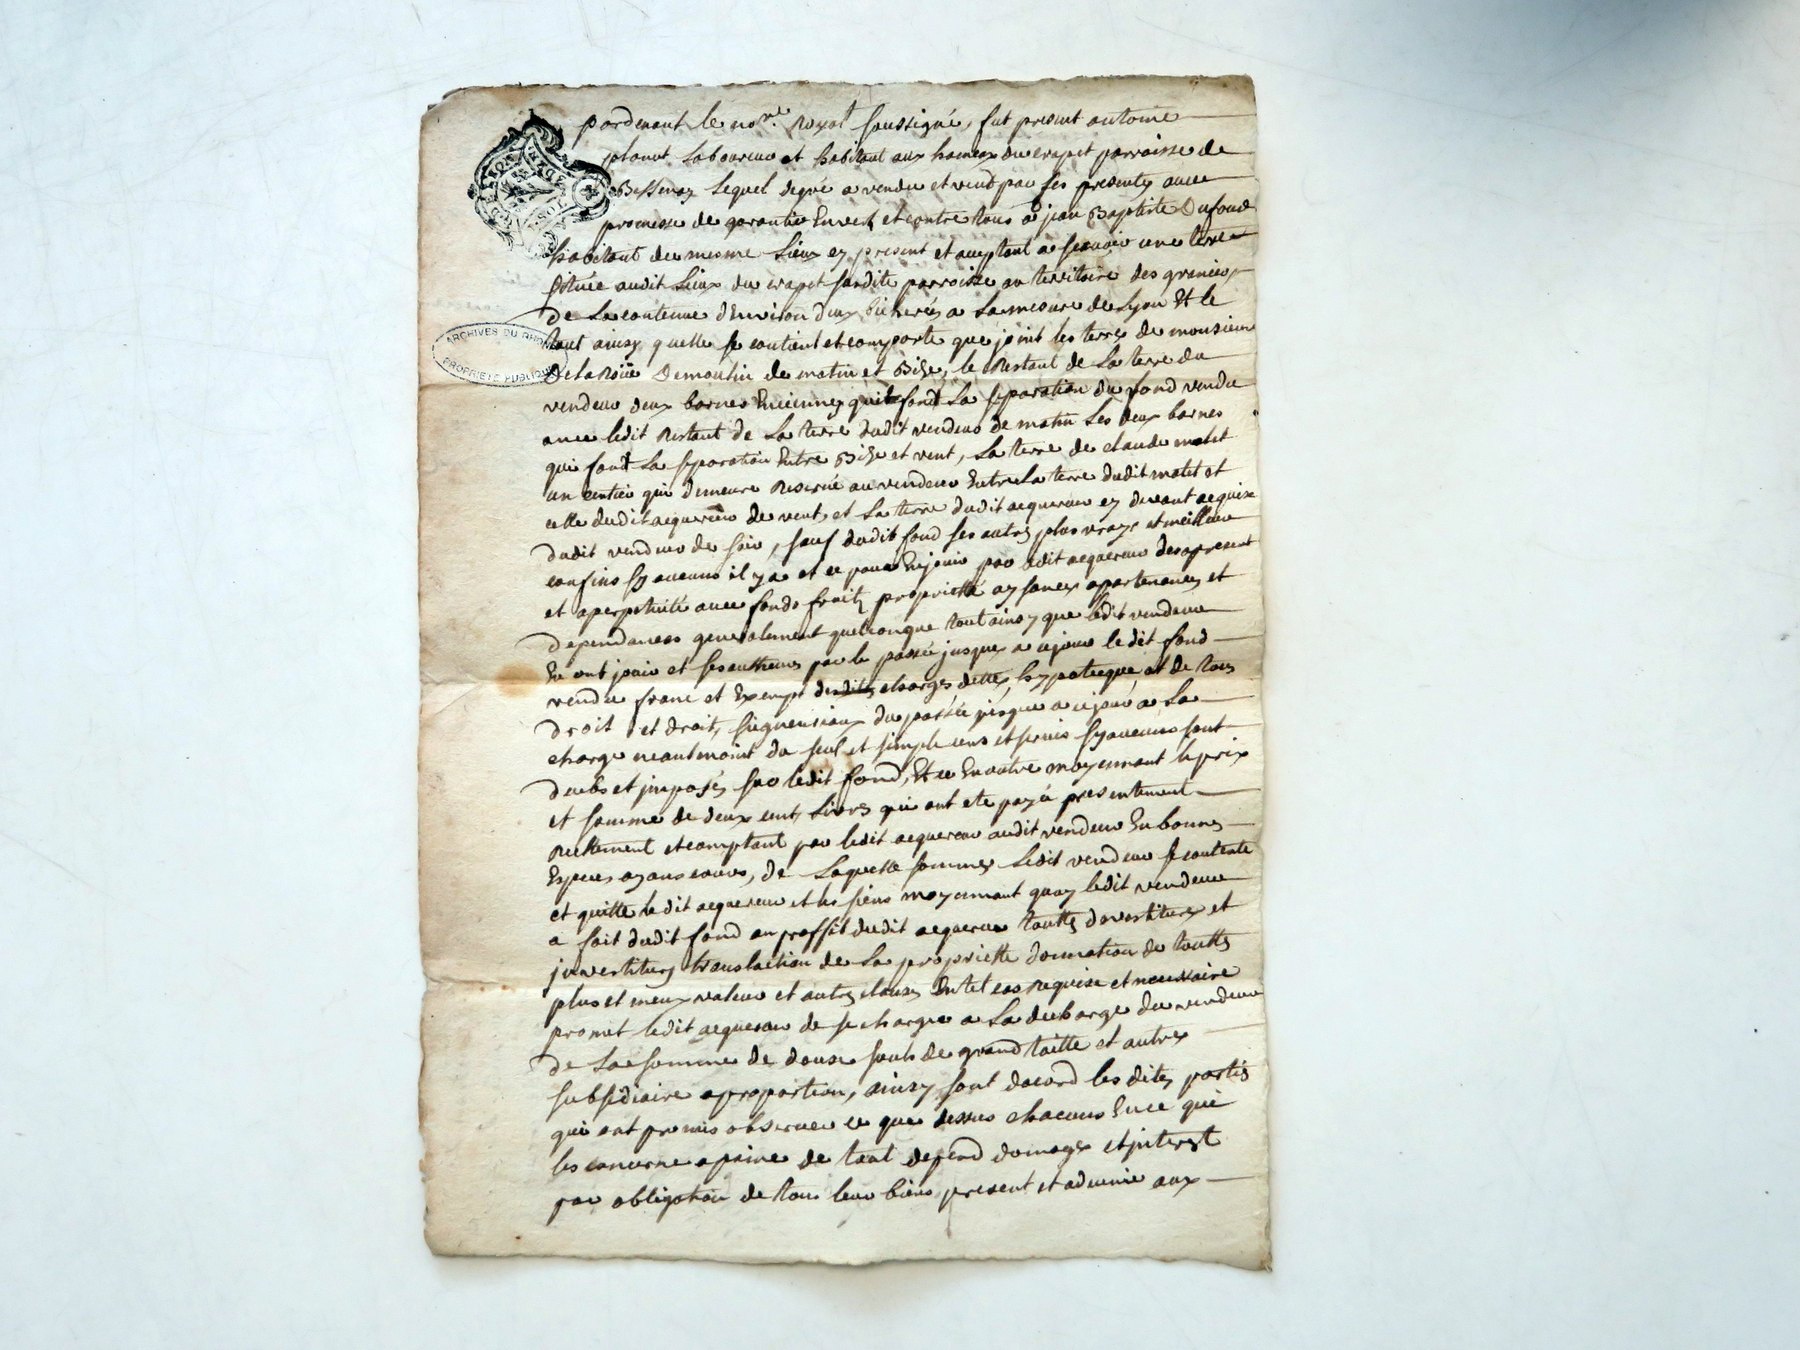 pardevant le no.re Royal soussigné, fut present antoine
planut Laboureur et habitant aux hameax du crapet parroisse de
Bessenay Lequel degré a vendu et vend par ses presentes avec
promesse de garantie Envers et contre tous a jean Baptiste Dufour
habitant du mesme Lieux ey present et aceptant a scavoir une terre
située audit Lieux du crapet susdite parroisse au territoire des granies
de la contenue d'Environ deux bicherés a la mesure de Lyon Et le
tout ainsy quelle se contient et comporte que joint les terre de monsieur
De la Roüe Demoulin de matin et Bize, le Restant de la terre du
vendeur deux bornes Enciennes qui font La separation du fond vendu
avec ledit Restant de La terre dudit vendeur de matin Les deux bornes
qui font La separation Entre Bize et vent, La terre de claude matet
un sentier qui demeure Reservé au vendeur Entre La terre dudit matet et
celle dudit acquereur de vent, et La terre dudit acquereur ey devant acquise
dudit vendeur de soir, sauf dudit fond ses autres plus vrays et meilleur
confins sy aucuns il y a et ce pour En jouir par ledit acquereur des apresent
et aperpetuité avec fonds fruits proprietté aysances apartenances et
dependances generalement quelconque tout ainsy que ledit vendeur
En ont jouir et ses autheurs par le passée jusques a cejour le dit fond
vendu franc et Exempt desdites charges dettes, hypoteque, et de tous
droit et droits seigneuriaux du passée jusque a cejour a La
charge neantmoint du seul et simple cens et servis sy aucuns sont
dubs et jmposés sur ledit fond, Et ce En outre moyennant le prix
et somme de deux cents Livres qui ont ete payé presentement
Reellement et comptant par ledit acquereur audit vendeur En bonnes
Especes ayans cours, de Laquelle sommes Ledit vendeur se contente
et quitte ledit acquereur et les siens moyennant quay ledit vendeur
a fait dudit fond au proffit dudit acquereur touttes devestitures et
jnvestitures translaction de La proprietté donnation de touttes
plus et meux valeur et autres clauses En tel cas Requise et necessaire
promet ledit acquereur de se charger a La decharge du vendeur
de La somme de douze sols de grand taille et autres
subsidiaire aproportion, ainsy sont dacord les dites partis
qui ont promis observer ce que dessus chacuns En ce qui
les concerne apaine de tout depend domages et jnterest
par obligation de tous leur biens present et advenir aux
ARCHIVES DU RHONE
PROPRIETE PUBLIQUE